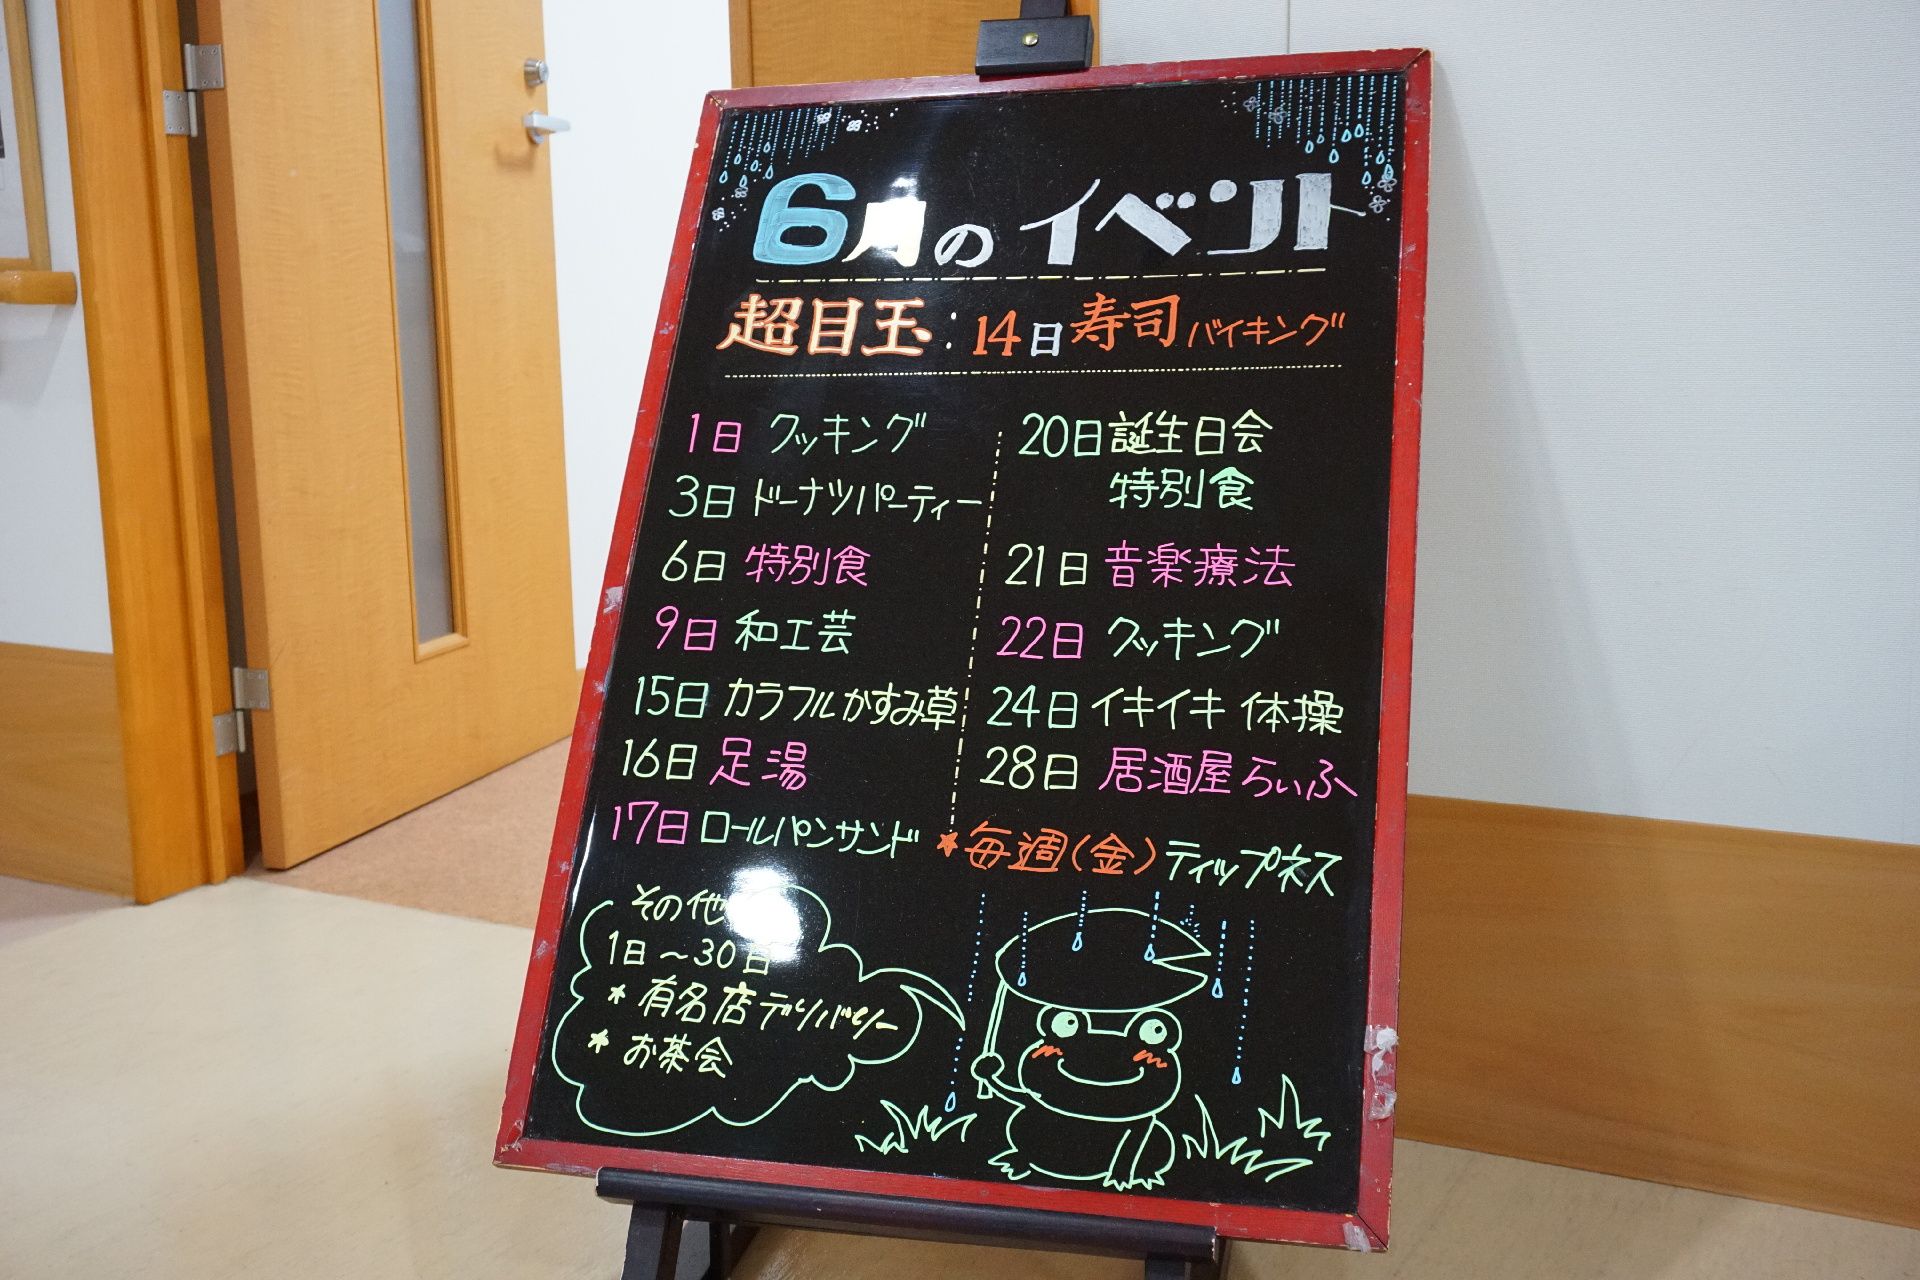 6月のイベント
超目玉：14日寿司バイキング
1日 クッキング
3日 ドーナツパーティー
6日 特別食
9日 和工芸
15日 カラフルかすみ草
16日 足湯
17日 ロールパンサンド
20日 誕生日会
特別食
21日 音楽療法
22日 クッキング
24日 イキイキ 体操
28日 居酒屋らいふ
*毎週(金)ティップネス
その他
1日～30日
* 有名店デリバリー
* お茶会